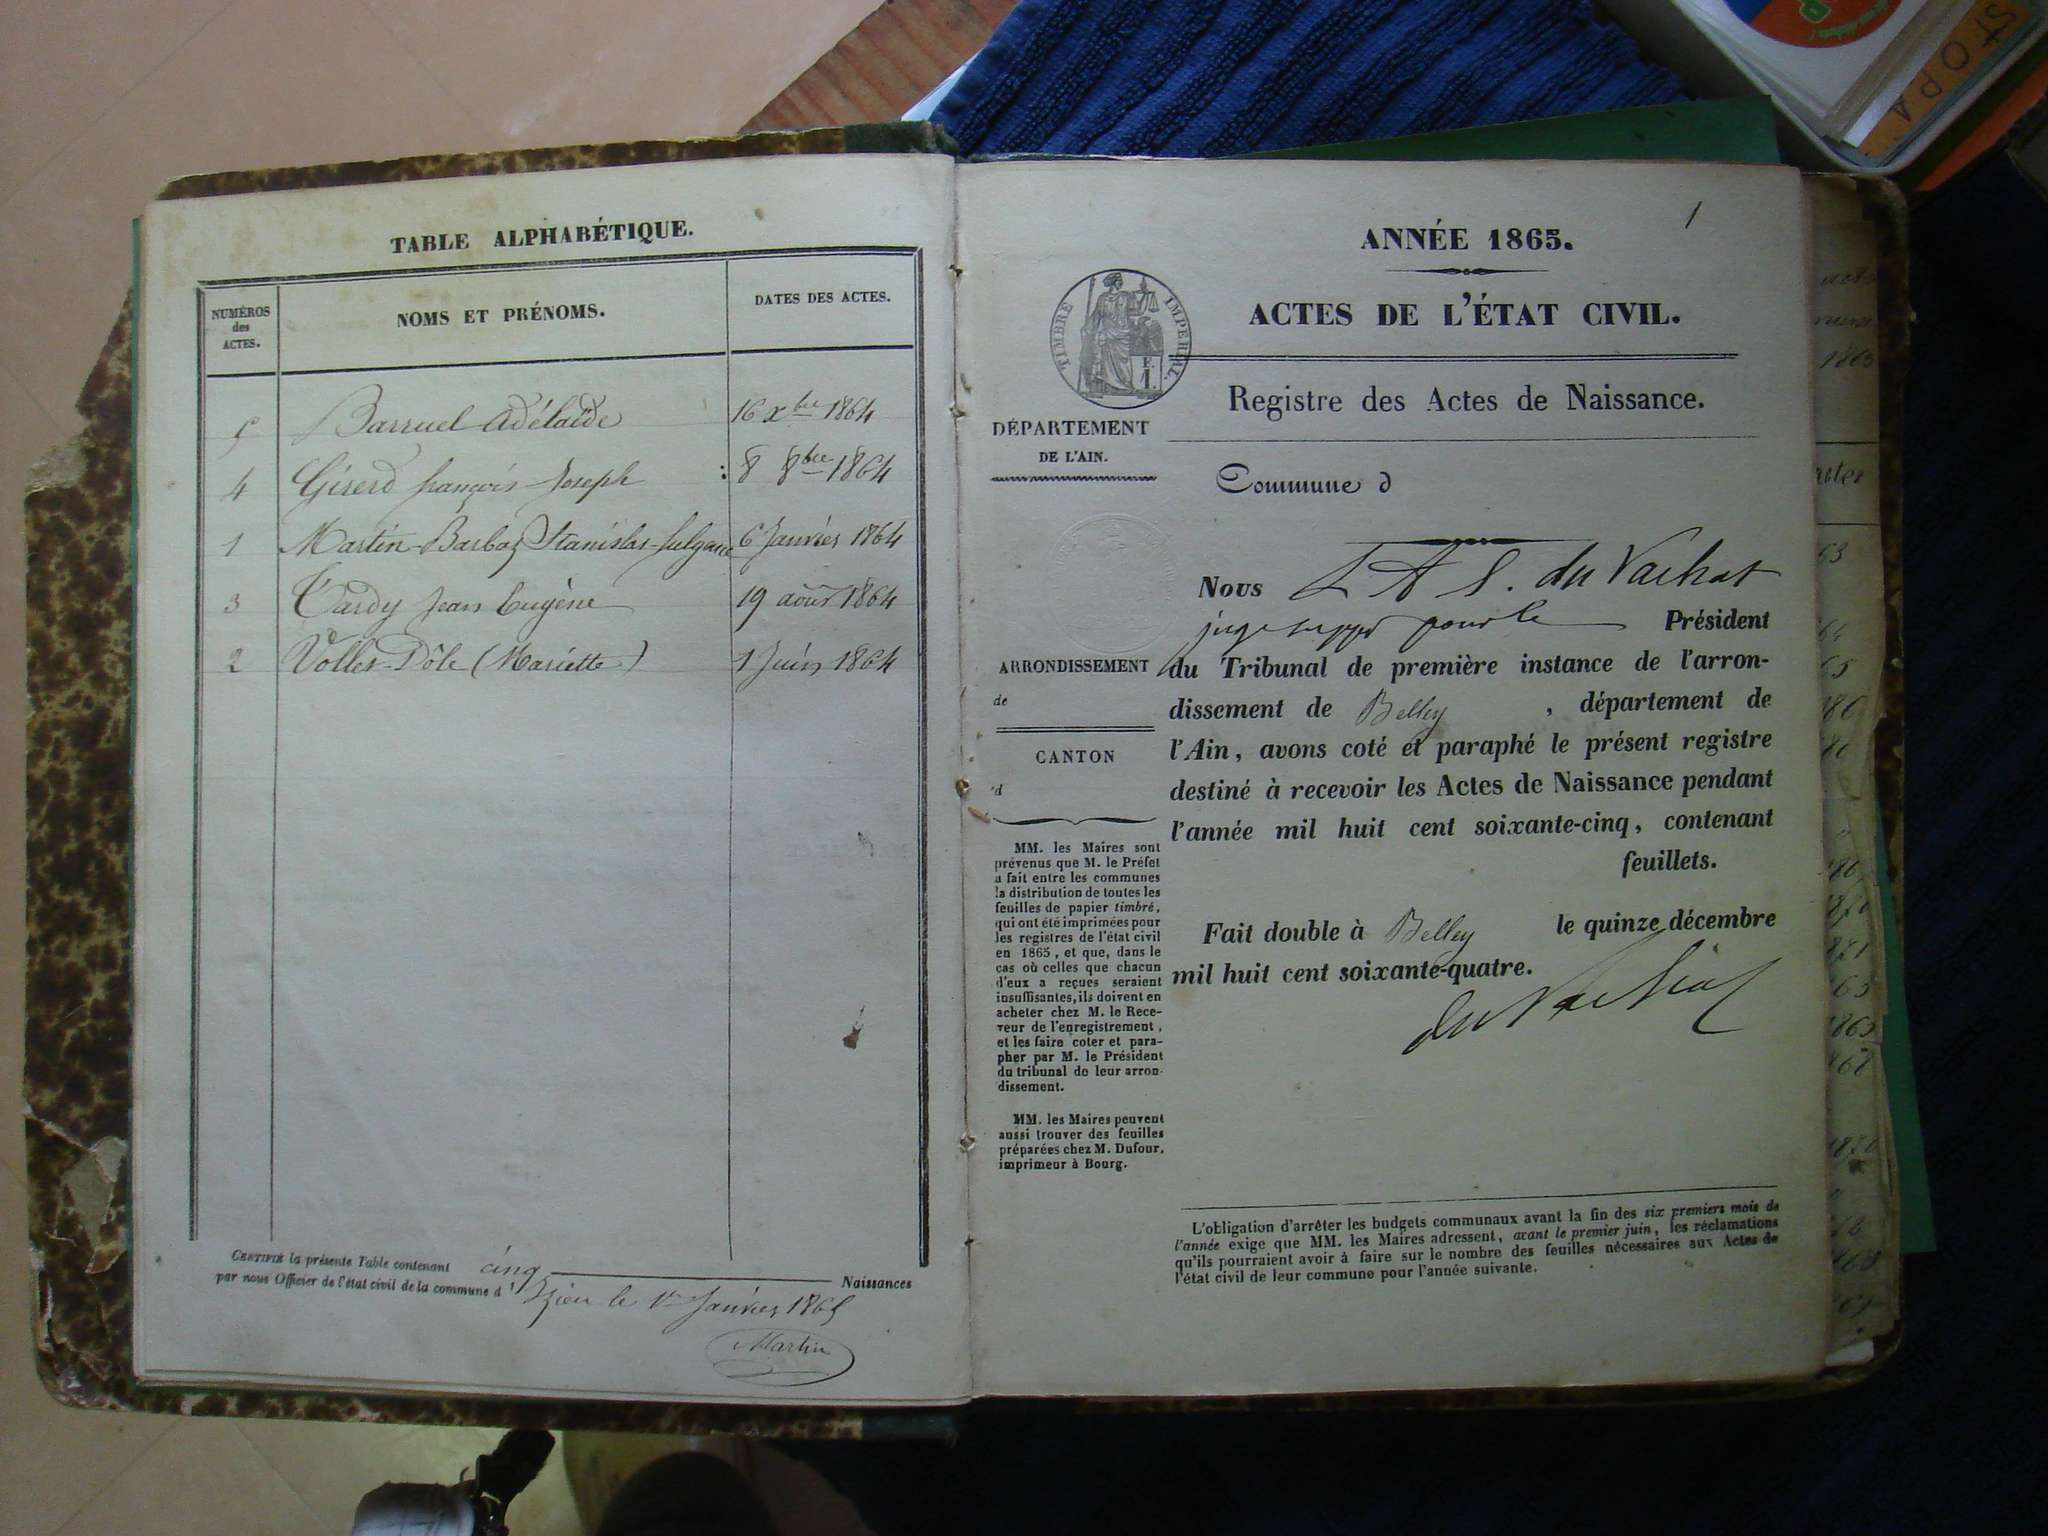 TABLE ALPHABÉTIQUE.
NUMÉROS des ACTES. NOMS ET PRÉNOMS. DATES DES ACTES.
5 Barruel Adélaïde 16 xbre 1864
4 Girerd françois Joseph : 8 8bre 1864
1 Martin-Barbaz Stanislas 6 Janvier 1864
3 Tardy Jean Eugène 19 août 1864
2 Vollet-Dôle (Mariette) 1 Juin 1864
CERTIFIÉ la présente Table contenant cinq Naissances
par nous Officier de l'état civil de la commune d'Izieu le 1er Janvier 1865
Martin
1
ANNÉE 1865.
TIMBRE IMPÉRIAL.
ACTES DE L'ÉTAT CIVIL.
Registre des Actes de Naissance.
DÉPARTEMENT
DE L'AIN.
Commune d
ARRONDISSEMENT
de
CANTON
d
MM. les Maires sont
prévenus que M. le Préfet
a fait entre les communes
la distribution de toutes les
feuilles de papier timbré,
qui ont été imprimées pour
les registres de l'état civil
en 1865, et que, dans le
cas où celles que chacun
d'eux a reçues seraient
insuffisantes, ils doivent en
acheter chez M. le Rece-
veur de l'enregistrement,
et les faire coter et para-
pher par M. le Président
du tribunal de leur arron-
dissement.
MM. les Maires peuvent
aussi trouver des feuilles
préparées chez M. Dufour,
imprimeur à Bourg.
Nous L A S. du Vachat
juge suppt pour le Président
du Tribunal de première instance de l'arron-
dissement de Belley , département de
l'Ain, avons coté et paraphé le présent registre
destiné à recevoir les Actes de Naissance pendant
l'année mil huit cent soixante-cinq, contenant
feuillets.
Fait double à Belley le quinze décembre
mil huit cent soixante-quatre.
du Vachat
L'obligation d'arrêter les budgets communaux avant la fin des six premiers mois de
l'année exige que MM. les Maires adressent, avant le premier juin, les réclamations
qu'ils pourraient avoir à faire sur le nombre des feuilles nécessaires aux Actes de
l'état civil de leur commune pour l'année suivante.